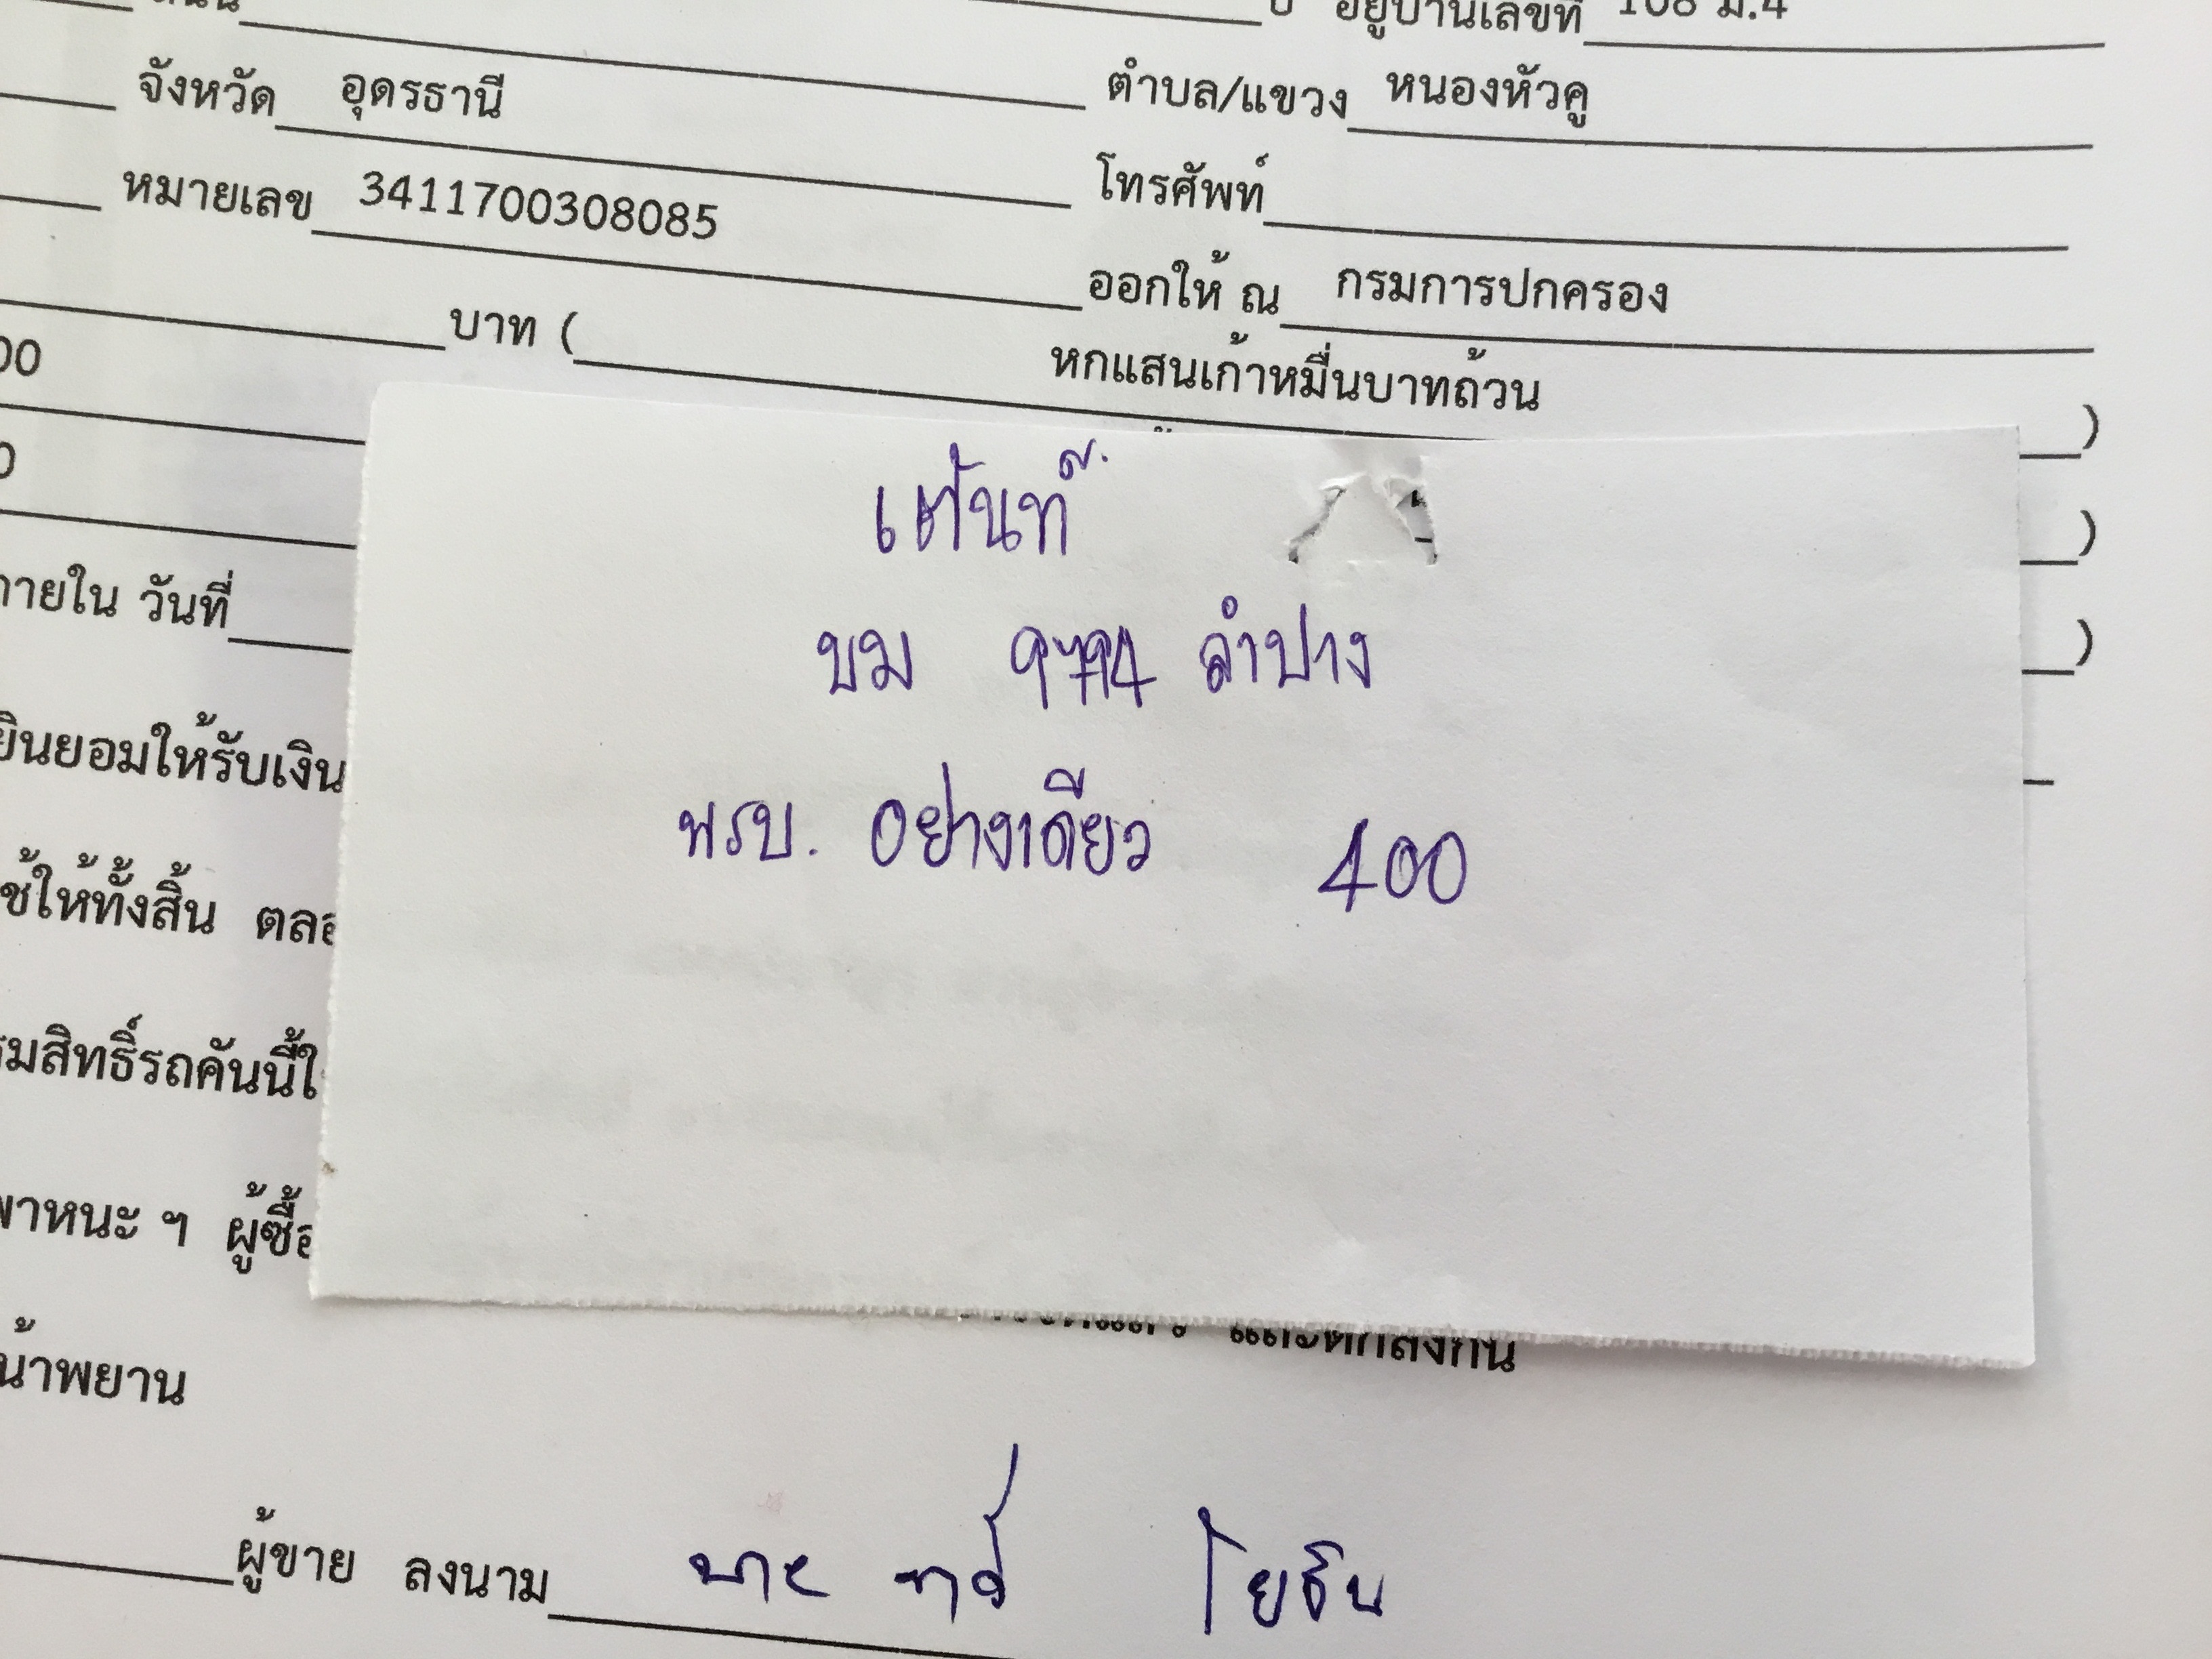 อยู่บ้านเลขที่ 108 ม.4
จังหวัด อุดรธานี ตำบล/แขวง หนองหัวคู
หมายเลข 3411700308085 โทรศัพท์
ออกให้ ณ กรมการปกครอง
00 บาท ( หกแสนเก้าหมื่นบาทถ้วน )
0 )
ภายใน วันที่ )
เต้นท์
บม ลำปาง
พรบ. อย่างเดียว 400
ยินยอมให้รับเงิน
ช้ให้ทั้งสิ้น ตลอ
รมสิทธิ์รถคันนี้ใ
พาหนะ ฯ ผู้ซื้อ
และตกลงกัน
น้าพยาน
ผู้ขาย ลงนาม โยธิน